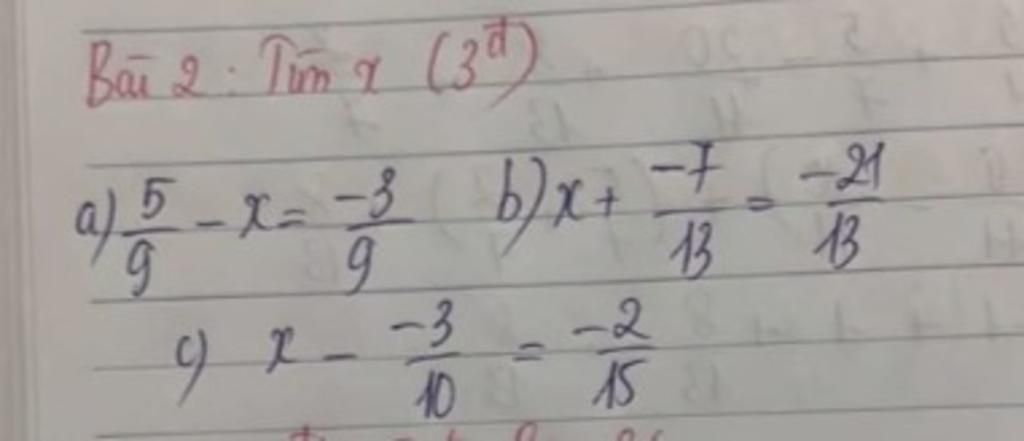 Bài 2: Tìm x (3đ)
a) 5/9 - x = -3/9 b) x + -7/13 = -21/13
c) x - -3/10 = -2/15